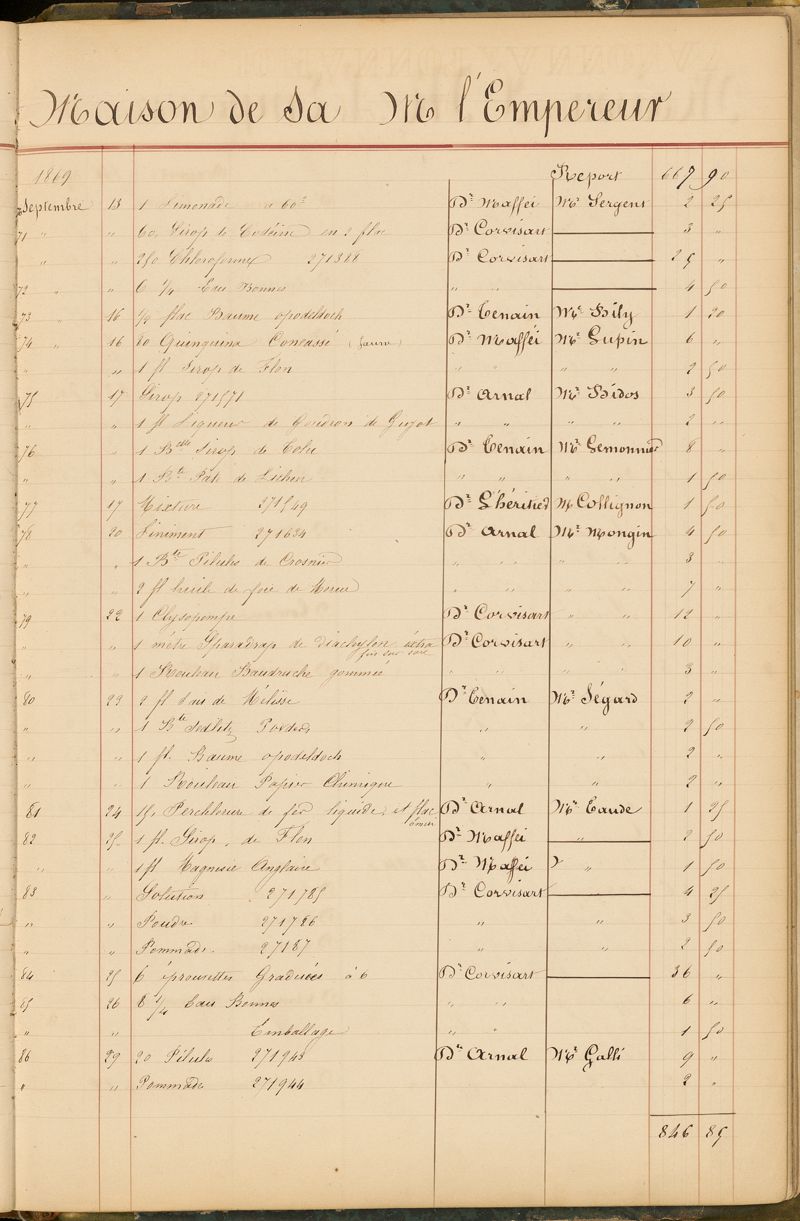 Maison de Sa M l'Empereur
1869 Report 667 90
Septembre 13 1 Limonade à 60 Dr Maffei Mr Sergent 2 25
71 " " 60 Sirop de Codéine en 2 flac Dr Corvisart 3 "
" " 250 Chloroforme 271388 Dr Corvisart 25 "
72 " " 6 1/4 Eau Bonnes " " 4 50
73 " 16 1/2 flac Baume opodeldoch Dr Tenain Mr Bily 1 20
74 " 16 80 Quinquina Concassé (jaune) Dr Maffei Mr Lupin 6 "
" " 1 fl Sirop de Flon " " " " 2 50
75 17 Sirop 271571 Dr Arnal Mr Bidos 3 50
" " 1 fl Liqueur de Goudron de Guyot " " " " 2 "
76 " 1 Blle Sirop de Tolu Dr Tenain Mr Lemonnier 8 "
" " 1 Bte Pâte de Lichen " " " " 1 50
77 17 Mixture 271549 Dr Lhéritier M Collignon 1 50
78 20 Liniment 271624 Dr Arnal Mr Mongin 4 50
" " 1 Bte Pilules de Crosnier " " " " 3 "
" " 2 fl huile de foie de Morue " " " " 7 "
79 22 1 Clysopompe Dr Corvisart " " 12 "
" " 1 mètre Sparadrap de diachylon extra Dr Corvisart " " 10 "
fin sur soie
" " 1 Rouleau Baudruche gommée " " " " 3 "
80 23 2 fl Eau de Mélisse Dr Tenain Mr Ségard 2 "
" " 1 Bte Sedlitz Powders " " 2 50
" " 1 fl. Baume opodeldoch " " 2 "
" " 1 Rouleau Papier Chimique " " 2 "
81 24 15, Perchlorure de fer liquide, et flac Dr Arnal Mr Caude 1 25
émeri
82 25 1 fl. Sirop de Flon Dr Maffei " 2 50
" " 1 fl Magnésie Anglaise Dr Maffei " 1 50
83 " Solution 271785 Dr Corvisart 4 25
" " Poudre 271786 " " 3 50
" " Pommade 27187 " " 2 50
84 25 6 éprouvettes Graduées à 6 Dr Corvisart 36 "
85 26 8 1/4 Eau Bonnes " " 6 "
" " Emballage " " 1 50
86 29 20 Pilules 271943 Dr Arnal Mr Galli 9 "
" " Pommade 271944 2 "
846 85